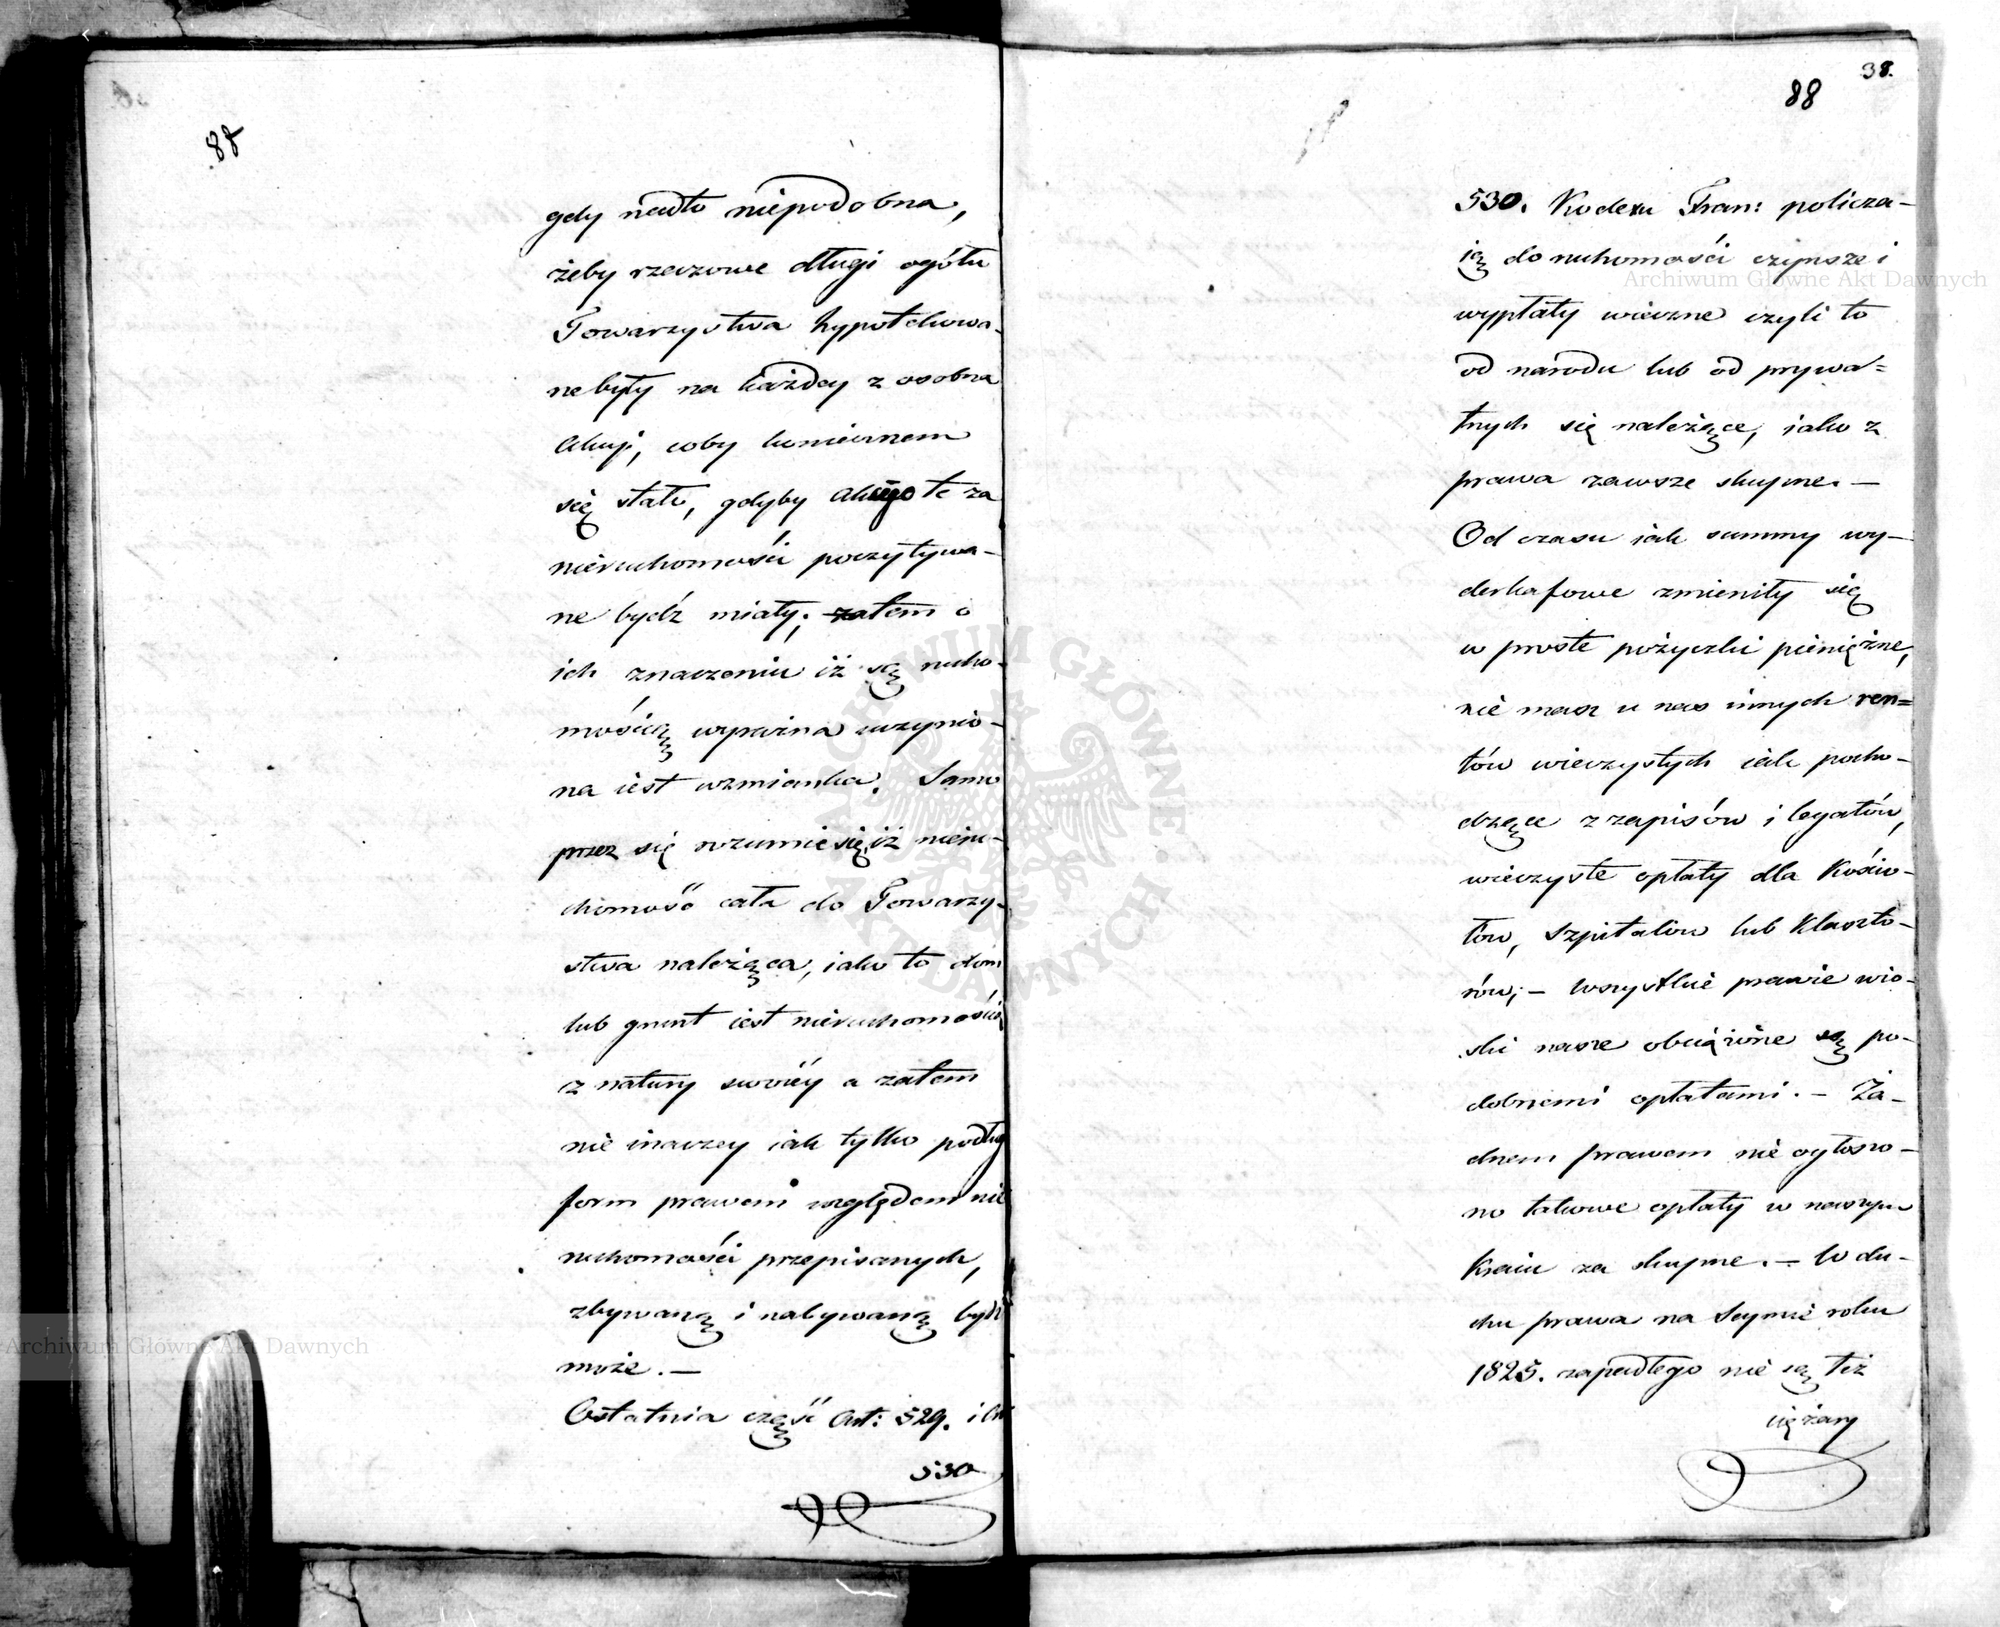 88
gdy nadto niepodobna,
żeby rzeczowe długi ogółu
Towarzystwa hypotekowa-
ne były na każdey z osobna
Akcji, coby koniecznem
się stało, gdyby akcye te za
nieruchomości poczytywa-
ne bydź miały; zatem o
ich znaczeniu iż są rucho-
mością wyraźna uczynio-
na iest wzmianka. Samo
przez się rozumie się, iż nieru-
chomość cała do Towarzy-
stwa należąca, iako to dom
lub grunt iest nieruchomością
z natury swoiéy a zatem
nie inaczey iak tylko podług
form prawem względem nie
ruchomości przepisanych,
zbywaną i nabywaną bydź
może. —
Ostatnia część Art: 529. i Art
530
38.
88
530. Kodexu Fran: policza-
ią do ruchomości czynsze i
wypłaty wieczne czyli to
od narodu lub od prywa=
tnych się należące, iako z
prawa zawsze skupne. —
Od czasu iak summy wy-
derkafowe zmieniły się
w proste pożyczki pieniężne,
nie masz u nas innych ren=
tów wieczystych iak pocho-
dzące z zapisów i legatów,
wieczyste opłaty dla Kościo-
łów, Szpitalów lub Klaszto-
rów; — wszystkie prawie wio-
ski nasze obciążone są po-
dobnemi opłatami. — Ża-
dnem prawem nie ogłoszo-
no takowe opłaty w naszym
Kraiu za skupne. — W du-
chu prawa na Seymie roku
1825. zapadłego nie są też
ciężary
Archiwum Główne Akt Dawnych
Archiwum Główne Akt Dawnych
ARCHIWUM GŁÓWNE AKT DAWNYCH